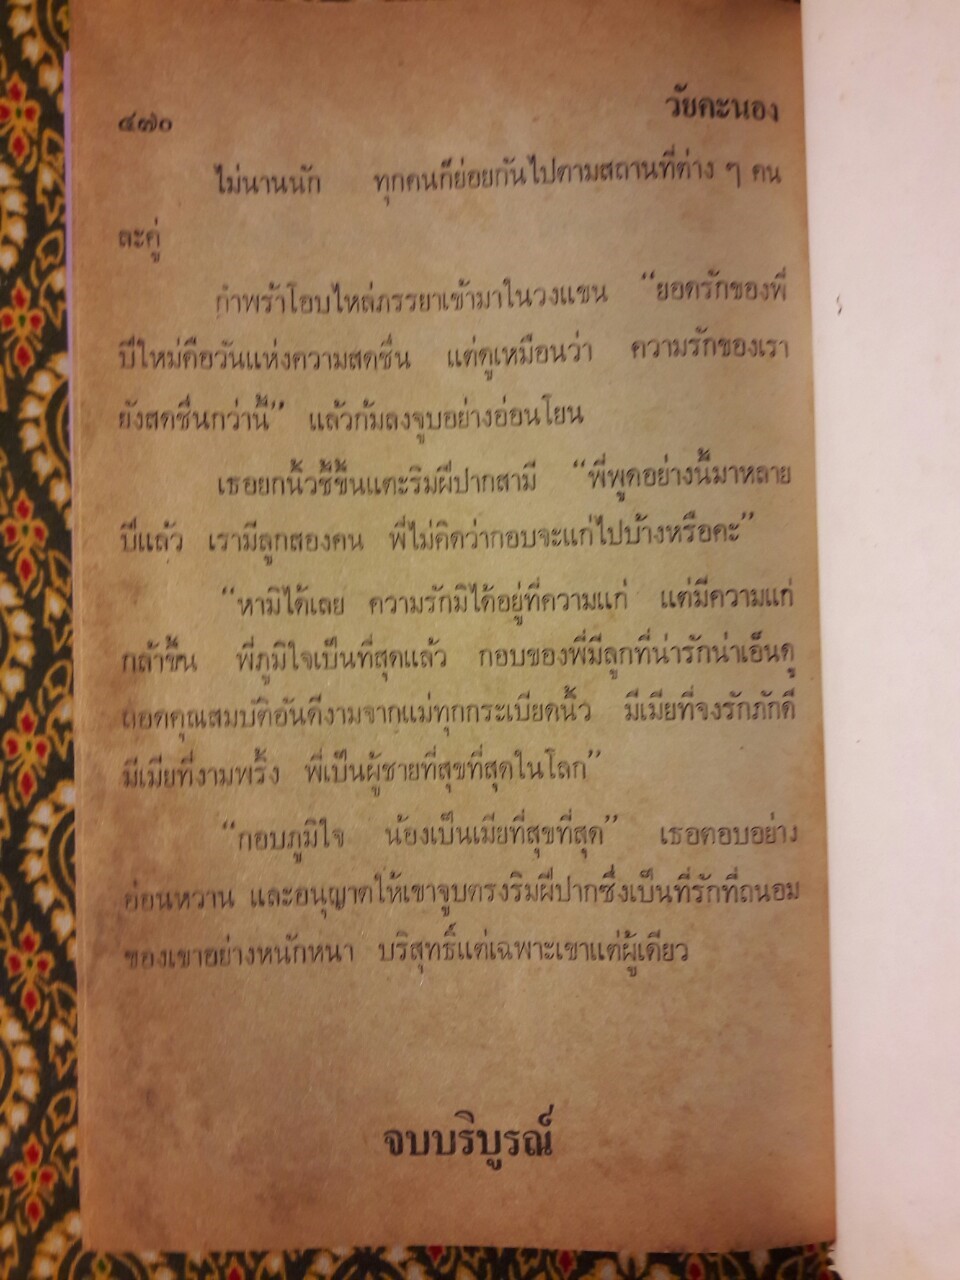 ๔๗๐
วัยคะนอง
ไม่นานนัก ทุกคนก็ย่อยกันไปตามสถานที่ต่าง ๆ คน
ละคู่
กำพร้าโอบไหล่ภรรยาเข้ามาในวงแขน “ยอดรักของพี่
ปีใหม่คือวันแห่งความสดชื่น แต่ดูเหมือนว่า ความรักของเรา
ยังสดชื่นกว่านี้” แล้วก้มลงจูบอย่างอ่อนโยน
เธอยกนิ้วชี้ขึ้นแตะริมฝีปากสามี “พี่พูดอย่างนี้มาหลาย
ปีแล้ว เรามีลูกสองคน พี่ไม่คิดว่ากอบจะแก่ไปบ้างหรือคะ”
“หามิได้เลย ความรักมิได้อยู่ที่ความแก่ แต่มีความแก่
กล้าขึ้น พี่ภูมิใจเป็นที่สุดแล้ว กอบของพี่มีลูกที่น่ารักน่าเอ็นดู
ถอดคุณสมบัติอันดีงามจากแม่ทุกกระเบียดนิ้ว มีเมียที่จงรักภักดี
มีเมียที่งามพริ้ง พี่เป็นผู้ชายที่สุขที่สุดในโลก”
“กอบภูมิใจ น้องเป็นเมียที่สุขที่สุด” เธอตอบอย่าง
อ่อนหวาน และอนุญาตให้เขาจูบตรงริมฝีปากซึ่งเป็นที่รักที่ถนอม
ของเขาอย่างหนักหนา บริสุทธิ์แต่เฉพาะเขาแต่ผู้เดียว
จบบริบูรณ์